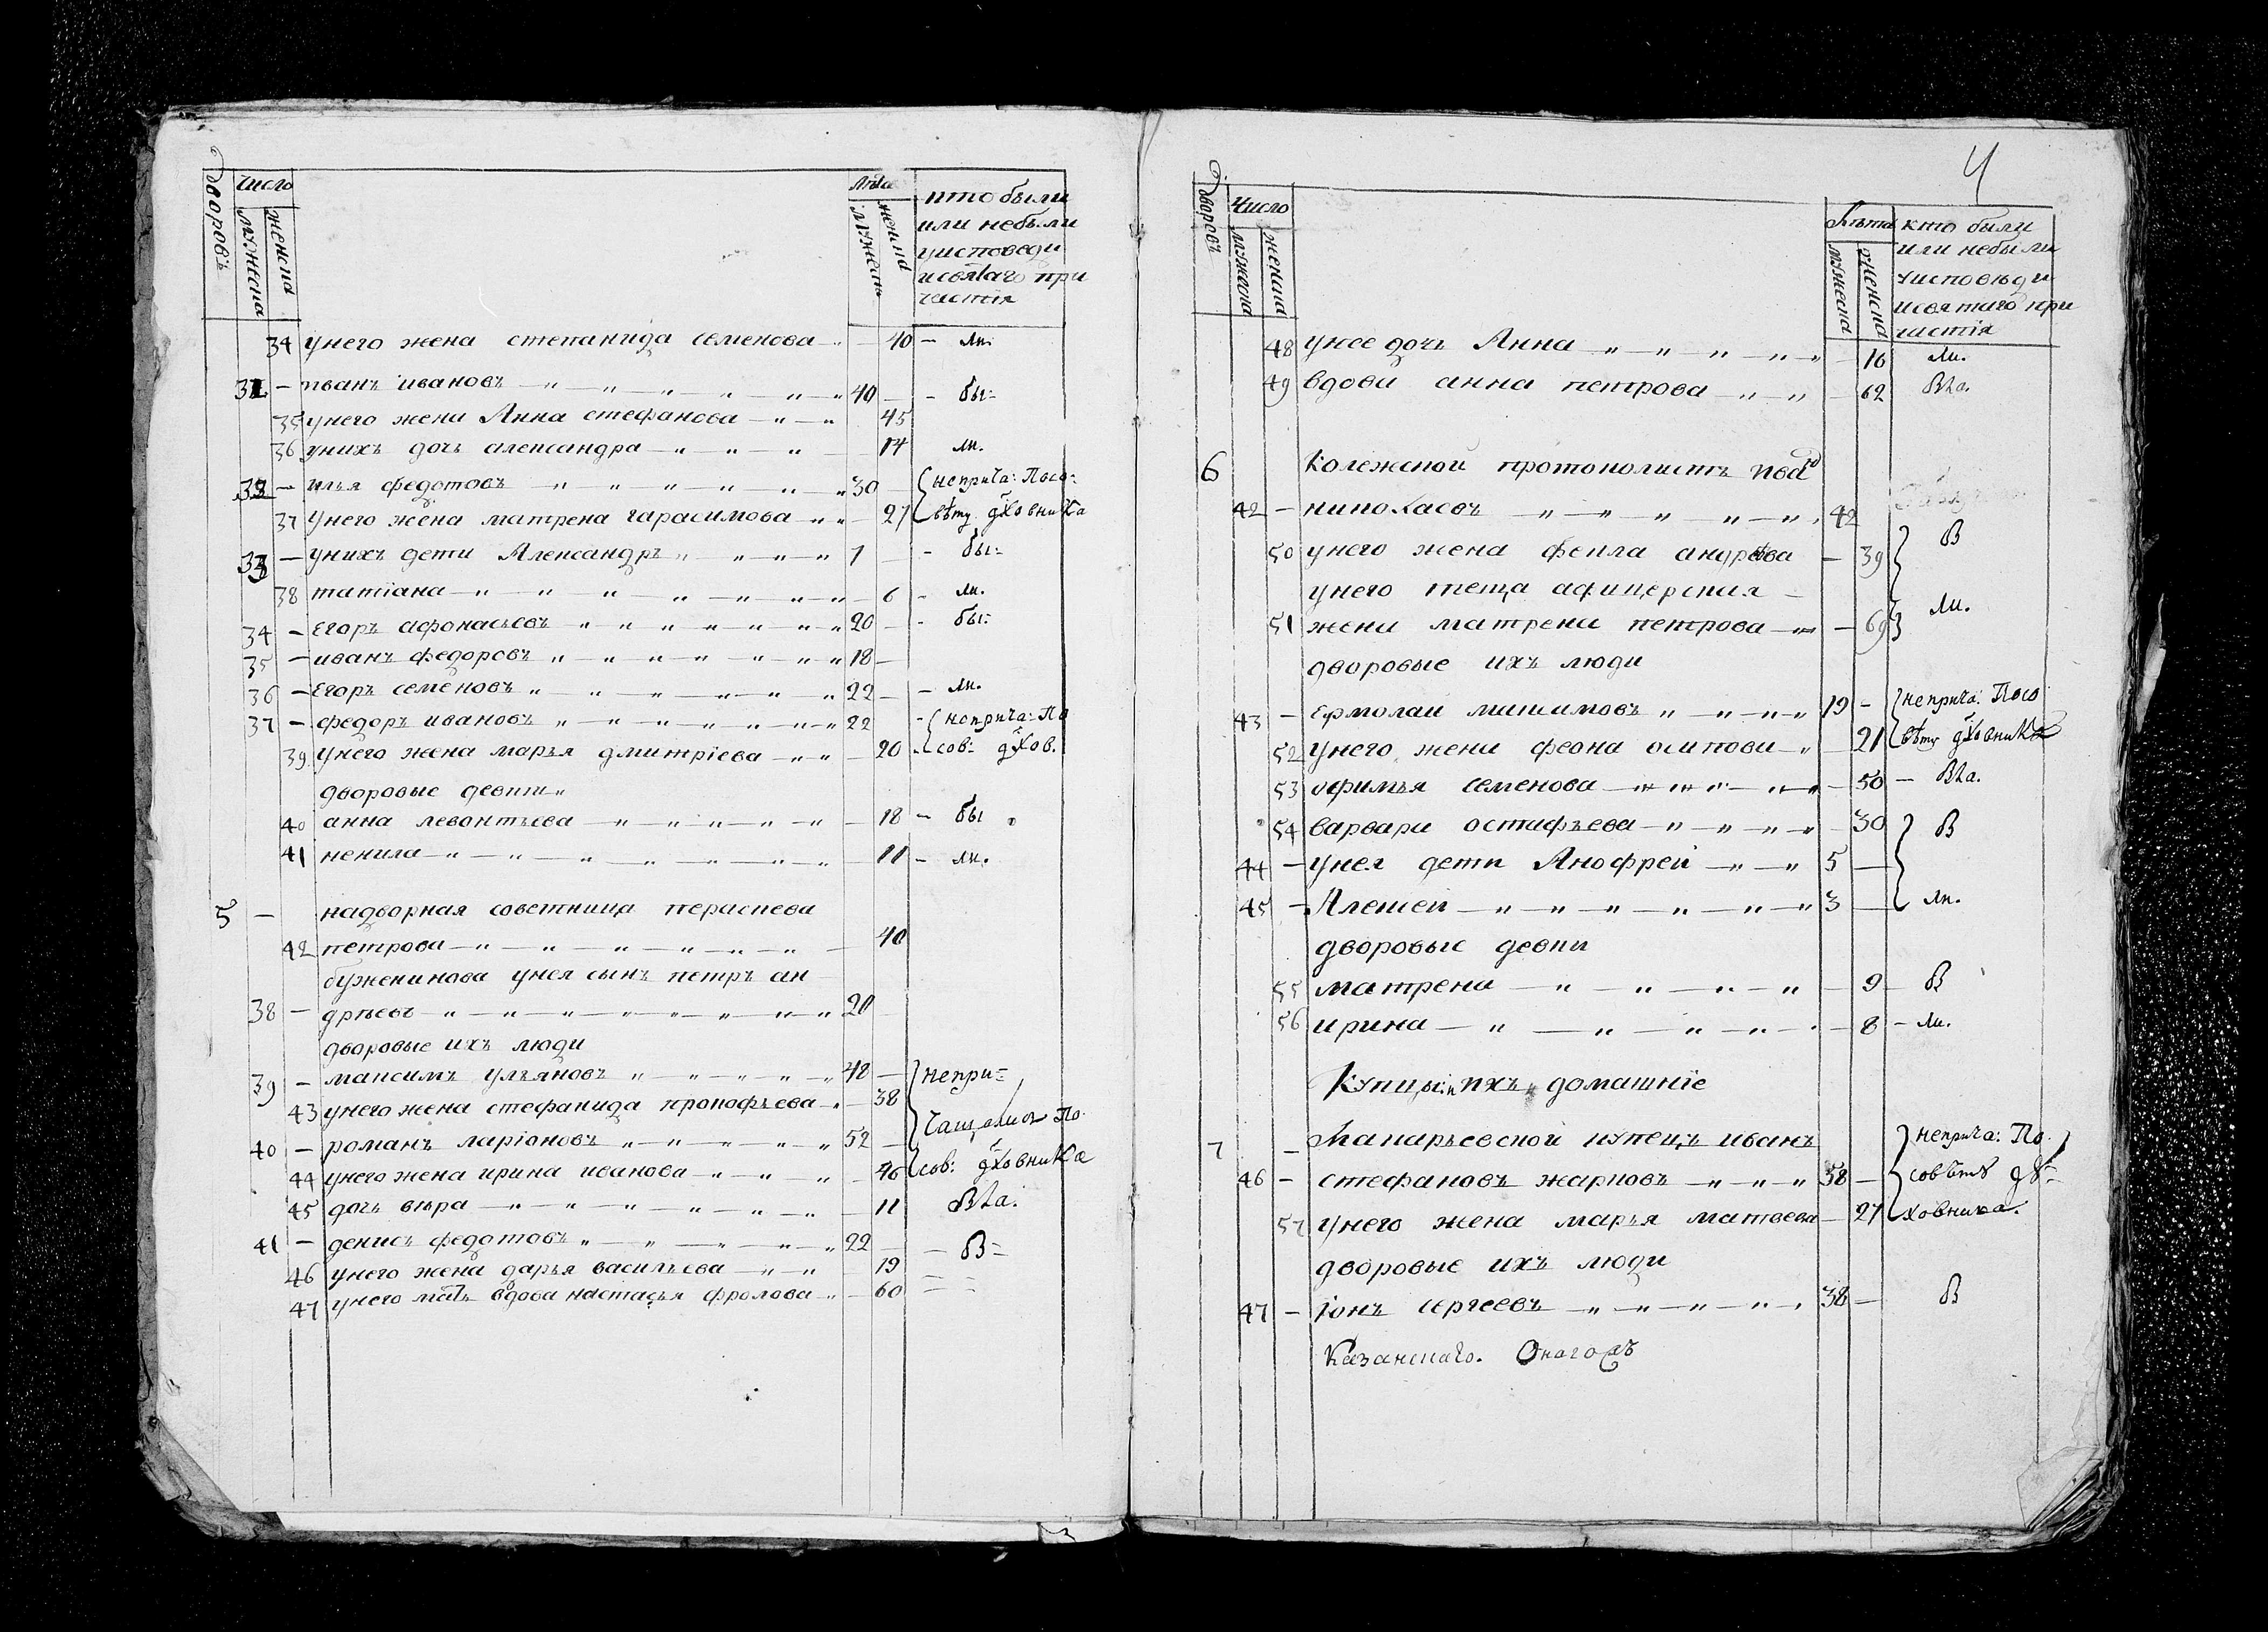 дворовъ Число мужеска женска лѣта мужеска женска кто были
или небыли
уисповеди
исвятаго при
частія
34 унего жена степанида семенова 40 ли.
31 иванъ ивановъ 40 бы
35 унего жена Анна стефанова 45
36 унихъ дочь александра 14 ли.
32 илья федотовъ 30 неприча: Посо
37 Унего жена матрена гарасимова 27 вѣту дховника
33 унихъ дети Александръ 7 бы
38 татіана 6 ли.
34 Егоръ афонасьевъ 20 бы
35 иванъ федоровъ 18
36 Егоръ семеновъ 22 ли.
37 федоръ ивановъ 22 неприча: По
39 унего жена марья дмитріева 20 сов: дхов.
дворовые девки
40 анна левонтьева 18 бы
41 ненила 11 ли.
5 надворная советница параскева
42 петрова 40
буженинова унея сынъ петръ ан
38 дрѣевъ 20
дворовые ихъ люди
39 максимъ ульяновъ 48 непри
43 унего жена стефанида прокофьева 38
40 романъ ларіоновъ 52 чащались По
44 унего жена ирина иванова 46 сов: дховника
45 дочь вѣра 11
41 денисъ федотовъ 22 В
46 унего жена дарья васильева 19
47 унего мать вдова настасья фролова 60
4
дворовъ Число мужеска женска Лѣта мужеска женска кто были
или небыли
уисповѣди
исвятаго при
частія
48 унее дочь Анна 16 ли.
49 вдова анна петрова 62
6 Колежской протоколистъ
42 42
50 унего жена фекла андрѣева 39 В
унего теща афицерская
51 жена матрена петрова 69 ли.
дворовые ихъ люди
43 Ермолаи максимовъ 19 неприча: Посо
52 Унего жена феона осипова 21 вѣту дховника
53 офимья семенова 50
54 варвара остафьева 30 В
44 унея дети Анофреи 5
45 Алексеи 3 ли.
дворовые девки
55 матрена 9 В
56 ирина 8 ли.
Купцы и ихъ домашніе
7 Макарьевской купецъ иванъ неприча: По
46 стефановъ жарковъ 58 совѣту ду
57 унего жена марья матвеева 27 ховника.
дворовые ихъ люди
47 іонъ сергеевъ 38 В
Казанскаго.